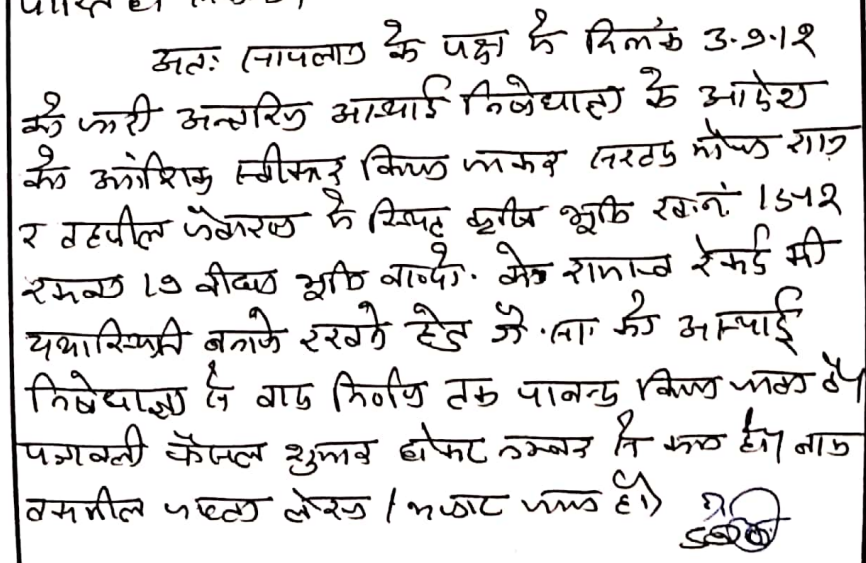 अतः सायलान के पक्ष में दिनांक 3.9.12
को जारी अन्तरिम अस्थाई निषेधाज्ञा के आदेश
को आंशिक स्वीकार किया जाकर सरहद मौजा
व तहसील में स्थित कृषि भूमि ख.नं. 1542
रकबा 19 बीघा भूमि राजस्व रेकर्ड की
यथास्थिति बनाये रखने हेतु गै.सा. को अस्थाई
निषेधाज्ञा से वाद निर्णय तक पाबन्द किया जाता है।
पत्रावली फैसल शुमार होकर नम्बर से कम हो। बाद
तकमील जाब्ता हो।